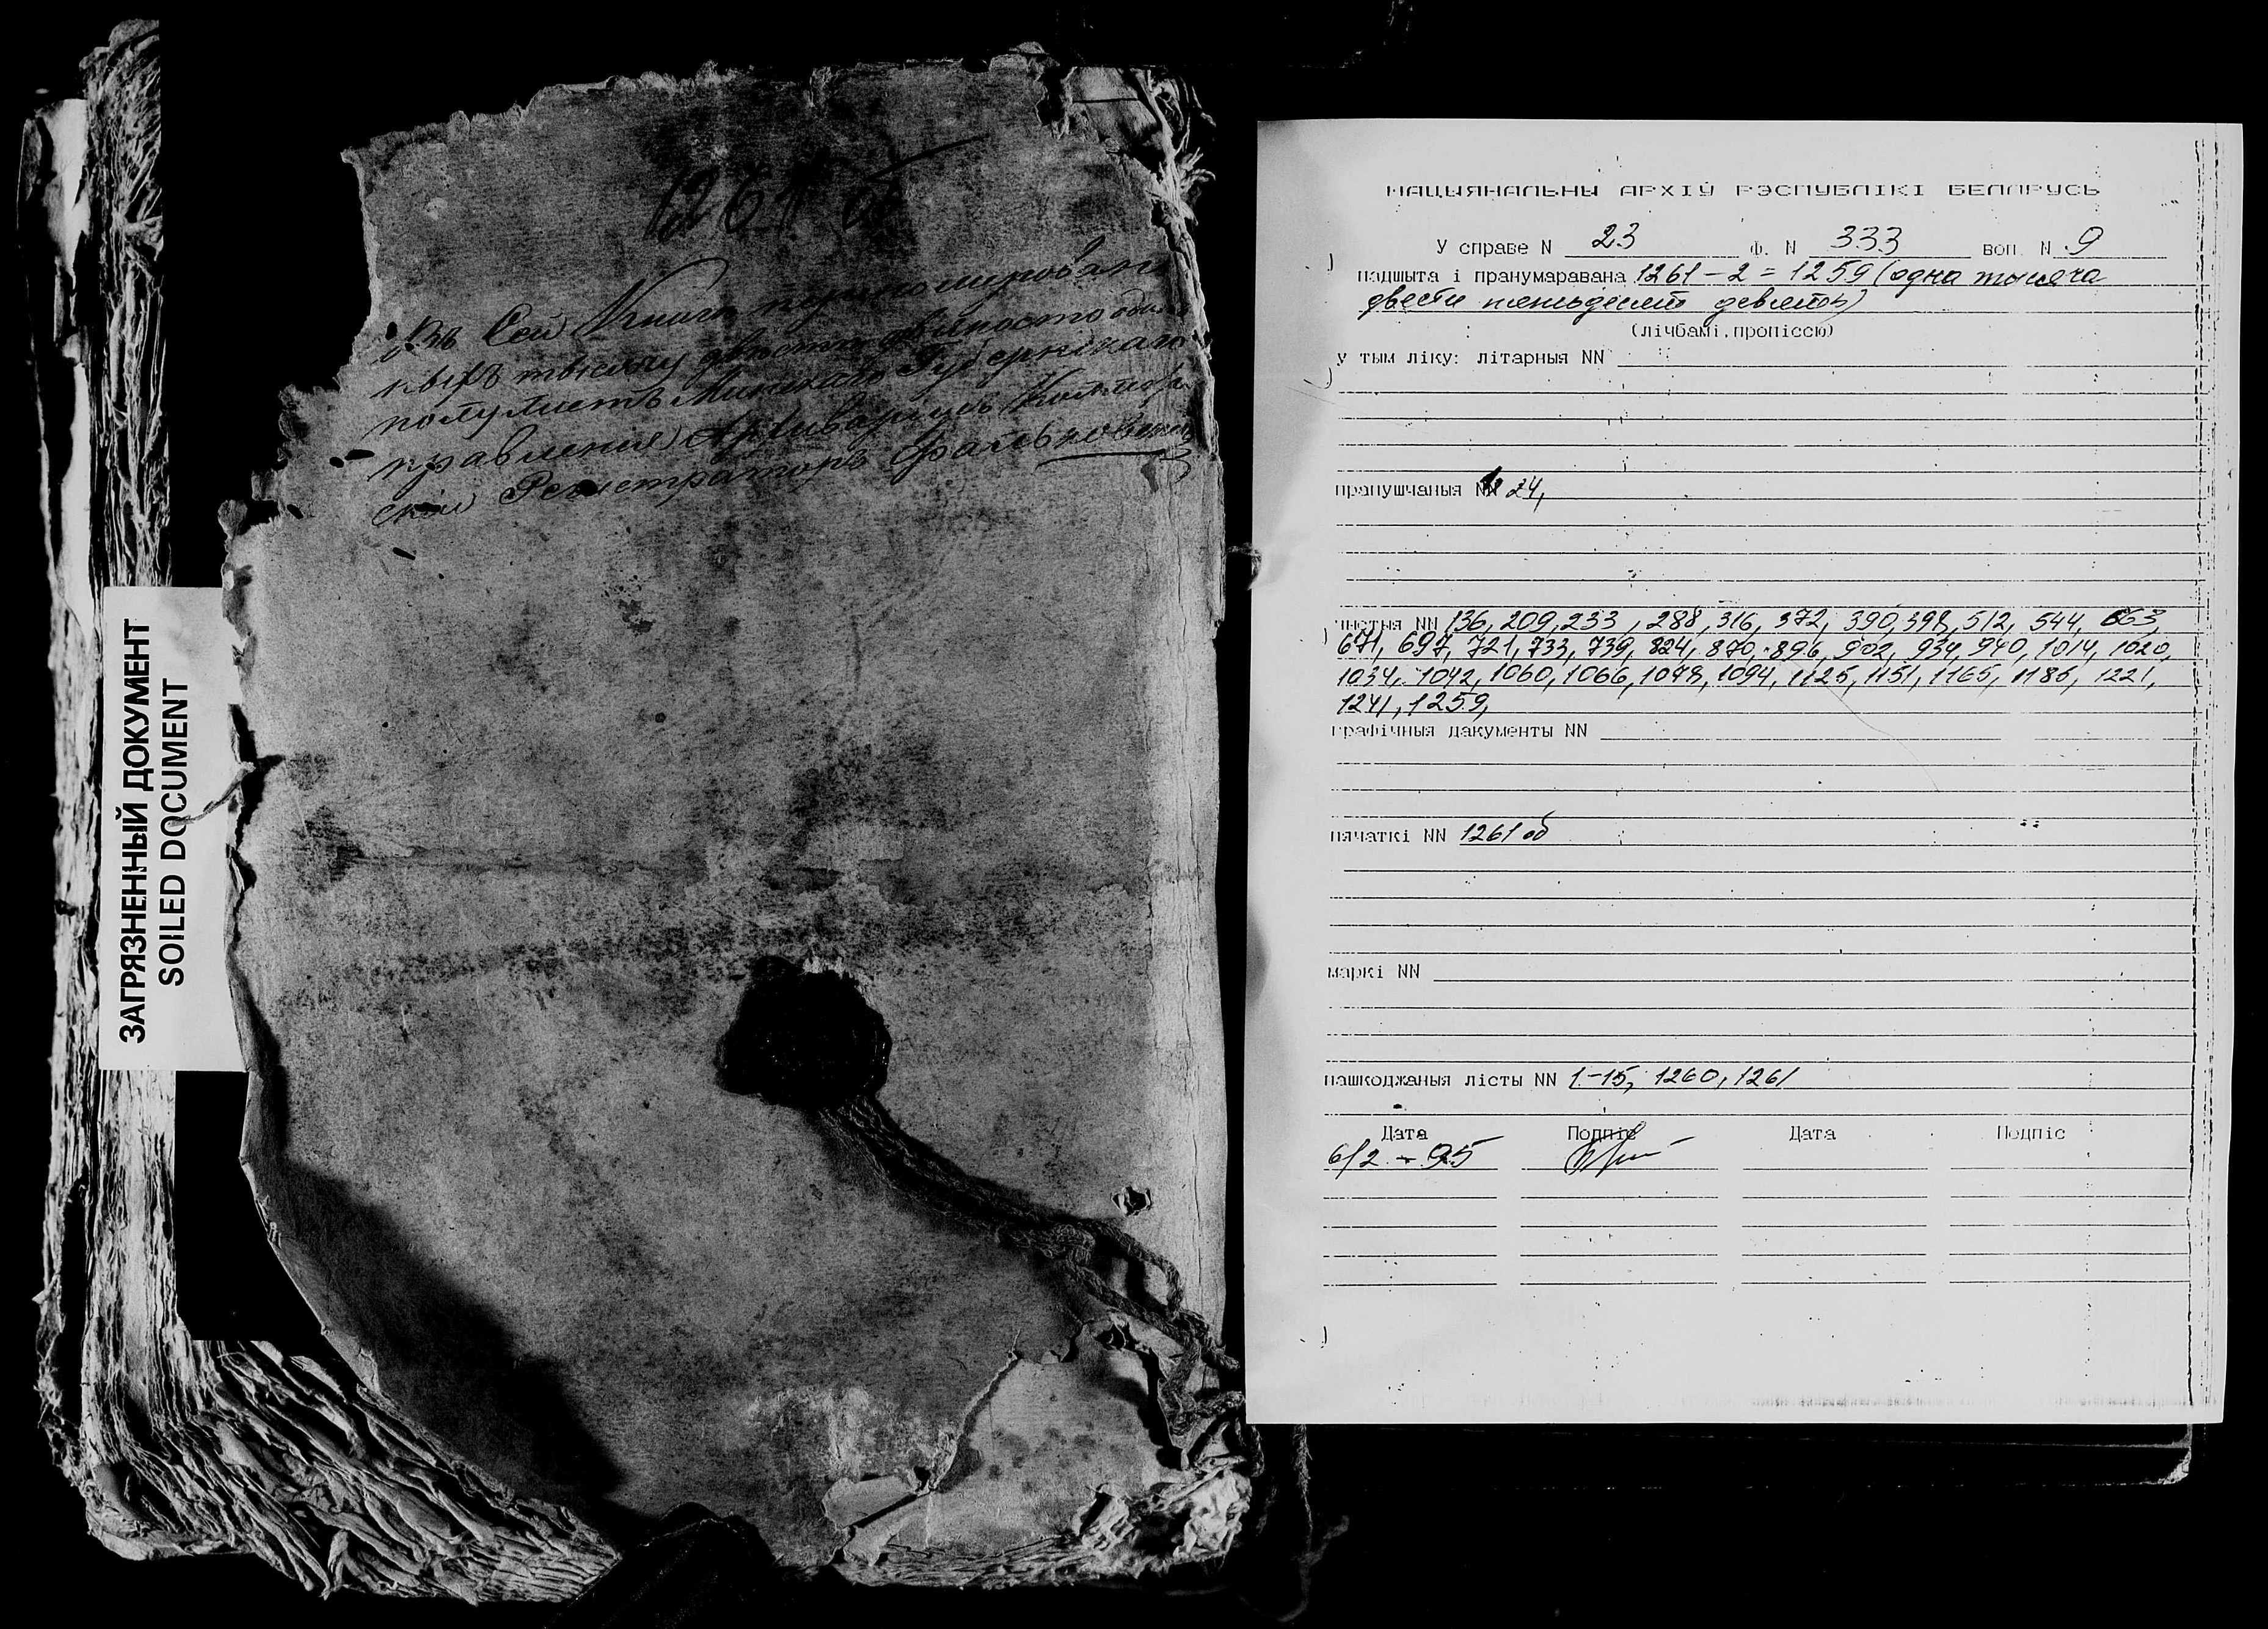 ЗАГРЯЗНЕННЫЙ ДОКУМЕНТ
SOILED DOCUMENT
1261 об
Въ Сей Книгѣ
тысячу двѣсти девяносто
полулистъ Минскаго Губернскаго
правления Архиваріусъ
скій Регистраторъ
НАЦЫЯНАЛЬНЫ АРХІЎ РЭСПУБЛІКІ БЕЛАРУСЬ
У справе N 23 ф. N 333 воп. N 9
падшыта і пранумаравана 1261-2=1259 (одна тысяча
двести пятьдесят девять)
(лічбамі, пропіссю)
у тым ліку: літарныя NN
прапушчаныя NN 24,
чыстыя NN 136, 209, 233, 288, 316, 372, 390, 398, 512, 544, 663,
671, 697, 721, 733, 739, 824, 870, 896, 902, 934, 940, 1014, 1020,
1034, 1042, 1060, 1066, 1078, 1094, 1125, 1151, 1165, 1185, 1221,
1241, 1259,
графічныя дакументы NN
пячаткі NN 1261 об
маркі NN
пашкоджаныя лісты NN 1-15, 1260, 1261
Дата Подпіс Дата Подпіс
6/2 - 95